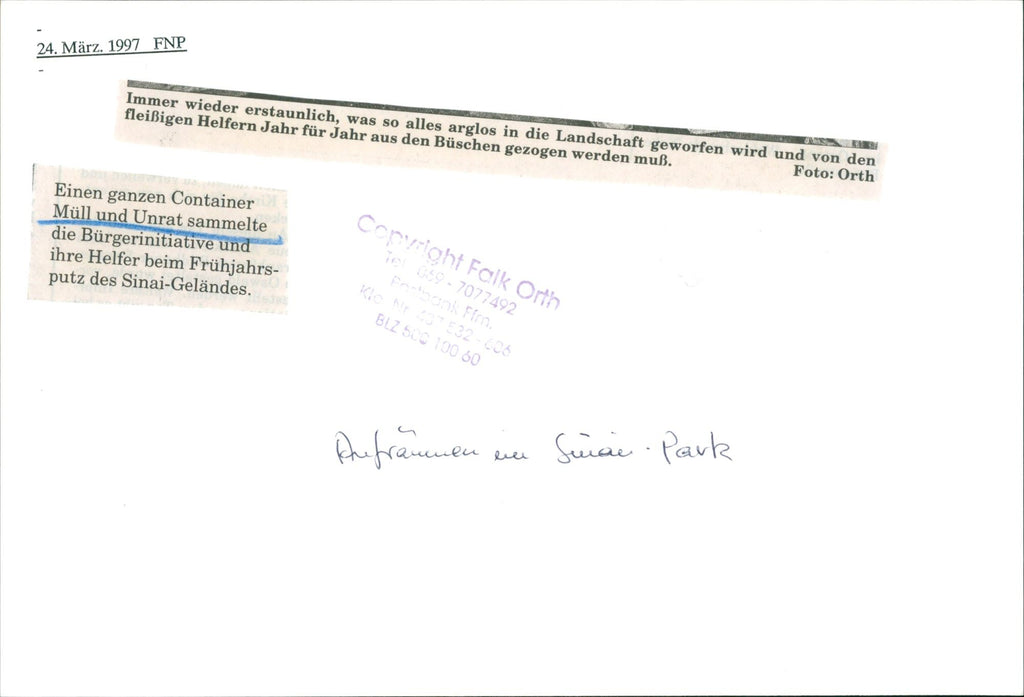 24. März. 1997 FNP
Immer wieder erstaunlich, was so alles arglos in die Landschaft geworfen wird und von den
fleißigen Helfern Jahr für Jahr aus den Büschen gezogen werden muß.
Foto: Orth
Einen ganzen Container
Müll und Unrat sammelte
die Bürgerinitiative und
ihre Helfer beim Frühjahrs-
putz des Sinai-Geländes.
Copyright Falk Orth
Tel. 069 - 7077492
Postbank Ffm.
Kto. Nr. 437 832 - 606
BLZ 500 100 60
Aufräumen im Sinai-Park